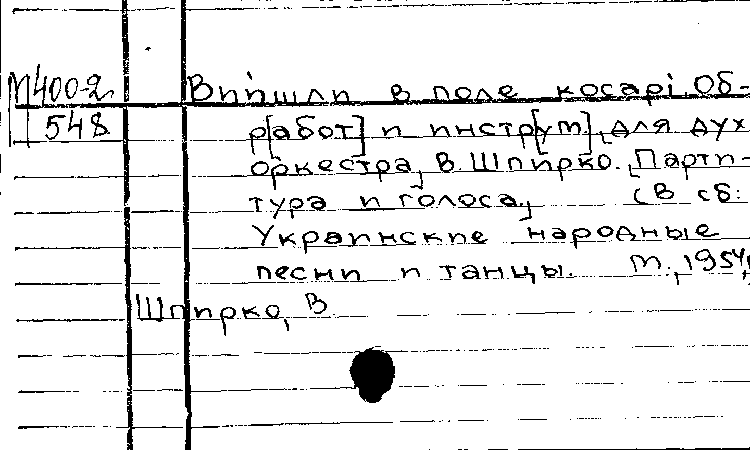 М400-2 Вийшли в поле косарі. Об-
548 р[абот] и инстр[ум]. для дух
оркестра В. Шпирко. Парти-
тура и голоса. (В сб:
Украинские народные
песни и танцы. М., 1954,
Шпирко, В